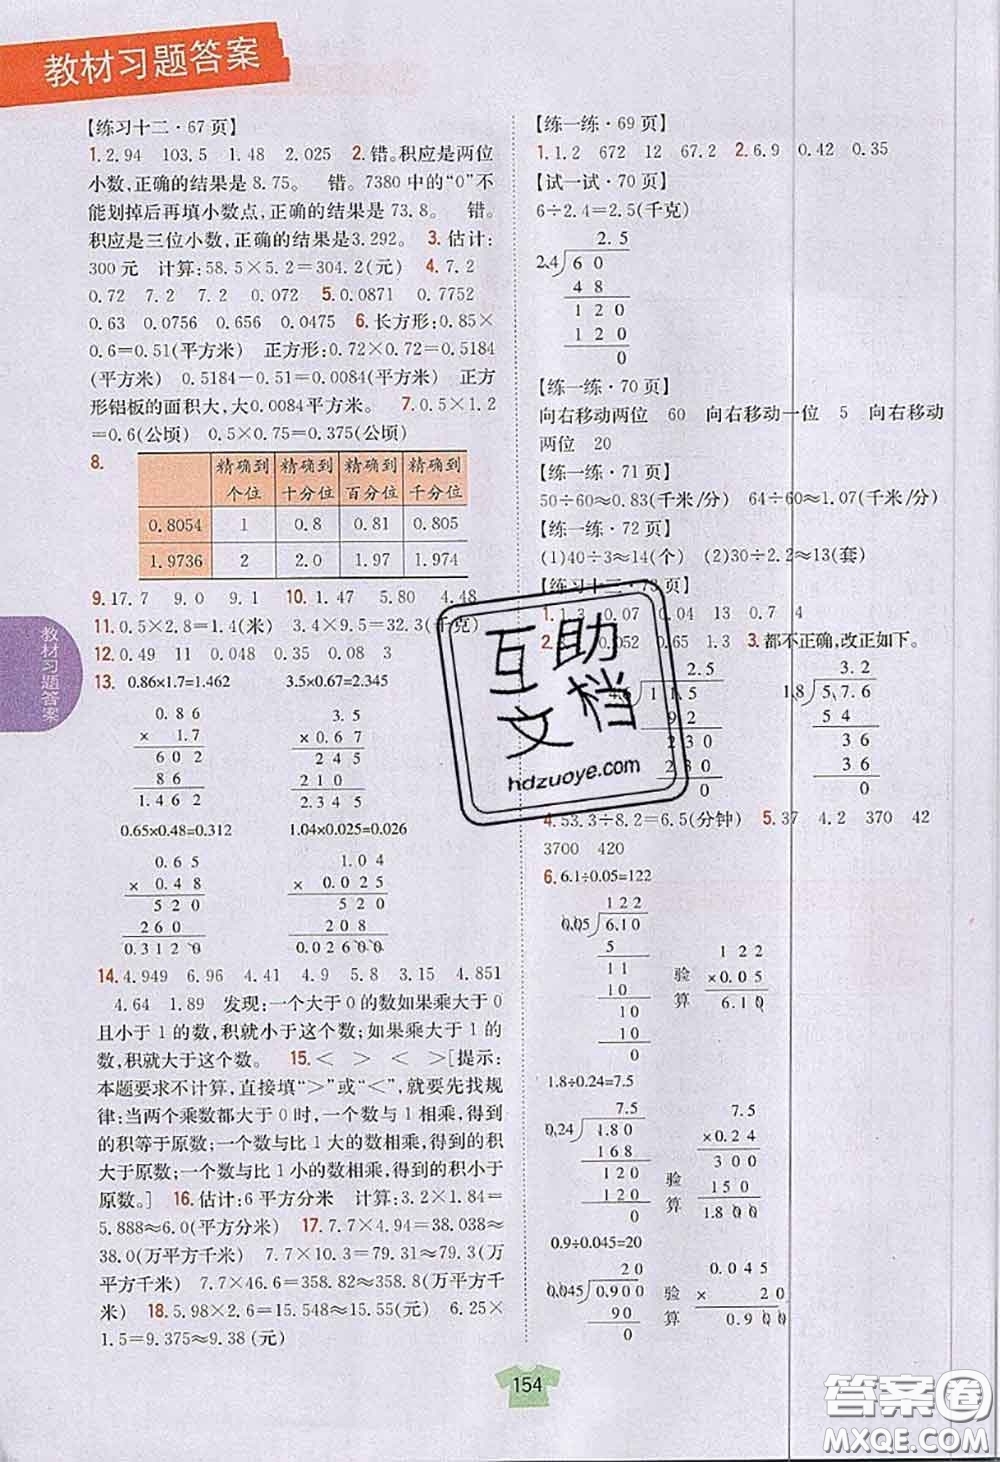 教材习题答案
【练习十二·67页】
1.2.94 103.5 1.48 2.025 2.错。积应是两位
小数,正确的结果是8.75。 错。7380中的“0”不
能划掉后再填小数点,正确的结果是73.8。 错。
积应是三位小数,正确的结果是3.292。 3.估计:
300元 计算:58.5×5.2=304.2(元) 4.7.2
0.72 7.2 7.2 0.072 5.0.0871 0.7752
0.63 0.0756 0.656 0.0475 6.长方形:0.85×
0.6=0.51(平方米) 正方形:0.72×0.72=0.5184
(平方米) 0.5184-0.51=0.0084(平方米) 正方
形铝板的面积大,大0.0084平方米。 7.0.5×1.2
=0.6(公顷) 0.5×0.75=0.375(公顷)
8.
精确到个位 精确到十分位 精确到百分位 精确到千分位
0.8054 1 0.8 0.81 0.805
1.9736 2 2.0 1.97 1.974
9.17.7 9.0 9.1 10.1.47 5.80 4.48
11.0.5×2.8=1.4(米) 3.4×9.5=32.3(千克)
12.0.49 11 0.048 0.35 0.08 3
13. 0.86×1.7=1.462 3.5×0.67=2.345
0.86 3.5
× 1.7 ×0.67
602 245
86 210
1.462 2.345
0.65×0.48=0.312 1.04×0.025=0.026
0.65 1.04
× 0.48 × 0.025
520 520
260 208
0.3120 0.02600
14.4.949 6.96 4.41 4.9 5.8 3.15 4.851
4.64 1.89 发现:一个大于0的数如果乘大于0
且小于1的数,积就小于这个数;如果乘大于1的
数,积就大于这个数。 15.< > < >[提示:
本题要求不计算,直接填“>”或“<”,就要先找规
律:当两个乘数都大于0时,一个数与1相乘,得到
的积等于原数;一个数与比1大的数相乘,得到的积
大于原数;一个数与比1小的数相乘,得到的积小于
原数。] 16.估计:6平方分米 计算:3.2×1.84=
5.888≈6.0(平方分米) 17.7.7×4.94=38.038≈
38.0(万平方千米) 7.7×10.3=79.31≈79.3(万
平方千米) 7.7×46.6=358.82≈358.8(万平方千
米) 18.5.98×2.6=15.548≈15.55(元) 6.25×
1.5=9.375≈9.38(元)
【练一练·69页】
1.1.2 672 12 67.2 2.6.9 0.42 0.35
【试一试·70页】
6÷2.4=2.5(千克)
2.5
2.4 60
48
120
120
0
【练一练·70页】
向右移动两位 60 向右移动一位 5 向右移动
两位 20
【练一练·71页】
50÷60≈0.83(千米/分) 64÷60≈1.07(千米/分)
【练一练·72页】
(1)40÷3≈14(个) (2)30÷2.2≈13(套)
【练习十三·73页】
1.1.3 0.07 0.04 13 0.7 4
2. 0.052 0.65 1.3 3.都不正确,改正如下。
2.5 3.2
115 1.8 5.76
92 54
230 36
230 36
0 0
4.53.3÷8.2=6.5(分钟) 5.37 4.2 370 42
3700 420
6. 6.1÷0.05=122
122
0.05 6.10
5
11
10
10
10
0
验算
122
×0.05
6.10
1.8÷0.24=7.5
7.5
0.24 1.80
168
120
120
0
验算
7.5
×0.24
300
150
1.800
0.9÷0.045=20
20
0.045 0.900
90
0
验算
0.045
× 20
0.900
教材习题答案
154
互助文档
hdzuoye.com
答案圈
MXQE.COM